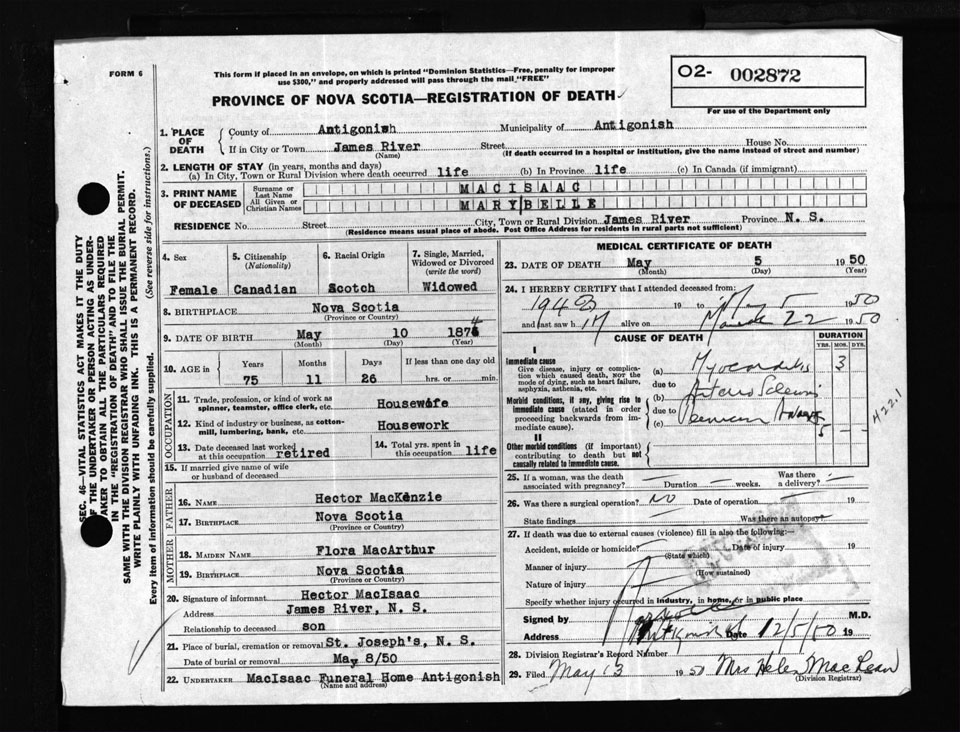 FORM 6
This form if placed in an envelope, on which is printed "Dominion Statistics—Free, penalty for improper
use $300," and properly addressed will pass through the mail "FREE"
PROVINCE OF NOVA SCOTIA—REGISTRATION OF DEATH
O2- 002872
For use of the Department only
SEC. 46—VITAL STATISTICS ACT MAKES IT THE DUTY
OF THE UNDERTAKER OR PERSON ACTING AS UNDER-
TAKER TO OBTAIN ALL THE PARTICULARS REQUIRED
IN THE "REGISTRATION OF DEATH" AND TO FILE THE
SAME WITH THE DIVISION REGISTRAR WHO SHALL ISSUE THE BURIAL PERMIT.
WRITE PLAINLY WITH UNFADING INK. THIS IS A PERMANENT RECORD.
Every item of information should be carefully supplied. (See reverse side for instructions.)
1. PLACE OF DEATH
County of Antigonish Municipality of Antigonish
If in City or Town James River Street House No.
(Name) (If death occurred in a hospital or institution, give the name instead of street and number)
2. LENGTH OF STAY (in years, months and days)
(a) In City, Town or Rural Division where death occurred life (b) In Province life (c) In Canada (if immigrant)
3. PRINT NAME OF DECEASED
Surname or Last Name MACISAAC
All Given or Christian Names MARY BELLE
RESIDENCE No. Street City, Town or Rural Division James River Province N. S.
(Residence means usual place of abode. Post Office Address for residents in rural parts not sufficient)
4. Sex 5. Citizenship (Nationality) 6. Racial Origin 7. Single, Married, Widowed or Divorced (write the word)
Female Canadian Scotch Widowed
8. BIRTHPLACE Nova Scotia
(Province or Country)
9. DATE OF BIRTH May 10 1874
(Month) (Day) (Year)
10. AGE in Years Months Days If less than one day old
75 11 26 hrs. or min.
OCCUPATION
11. Trade, profession, or kind of work as
spinner, teamster, office clerk, etc. Housewife
12. Kind of industry or business, as cotton-
mill, lumbering, bank, etc. Housework
13. Date deceased last worked
at this occupation retired
14. Total yrs. spent in
this occupation life
15. If married give name of wife
or husband of deceased
FATHER
16. NAME Hector MacKenzie
17. BIRTHPLACE Nova Scotia
(Province or Country)
MOTHER
18. MAIDEN NAME Flora MacArthur
19. BIRTHPLACE Nova Scotia
(Province or Country)
20. Signature of informant Hector MacIsaac
Address James River, N. S.
Relationship to deceased son
21. Place of burial, cremation or removal St. Joseph's, N. S.
Date of burial or removal May 8/50
22. UNDERTAKER MacIsaac Funeral Home Antigonish
(Name and address)
MEDICAL CERTIFICATE OF DEATH
23. DATE OF DEATH May 5 1950
(Month) (Day) (Year)
24. I HEREBY CERTIFY that I attended deceased from:
19 to May 5 1950
and last saw h alive on March 22 1950
CAUSE OF DEATH DURATION
YRS. MOS. DYS.
I
Immediate cause
Give disease, injury or complica-
tion which caused death, not the
mode of dying, such as heart failure,
asphyxia, asthenia, etc.
(a) Myocarditis 3
due to
Morbid conditions, if any, giving rise to
immediate cause (stated in order
proceeding backwards from im-
mediate cause).
(b) Arterio Sclerosis
due to
(c) 5
422.1
II
Other morbid conditions (if important)
contributing to death but not
causally related to immediate cause.
25. If a woman, was the death
associated with pregnancy? Duration weeks. Was there
a delivery?
26. Was there a surgical operation? No Date of operation 19
State findings Was there an autopsy?
27. If death was due to external causes (violence) fill in also the following:
Accident, suicide or homicide? Date of injury 19
(State which)
Manner of injury
(How sustained)
Nature of injury
Specify whether injury occurred in industry, in home, or in public place
Signed by M.D.
Address Antigonish Date 12/5/50 19
28. Division Registrar's Record Number
29. Filed May 13 1950 Mrs Helen MacLean
(Division Registrar)